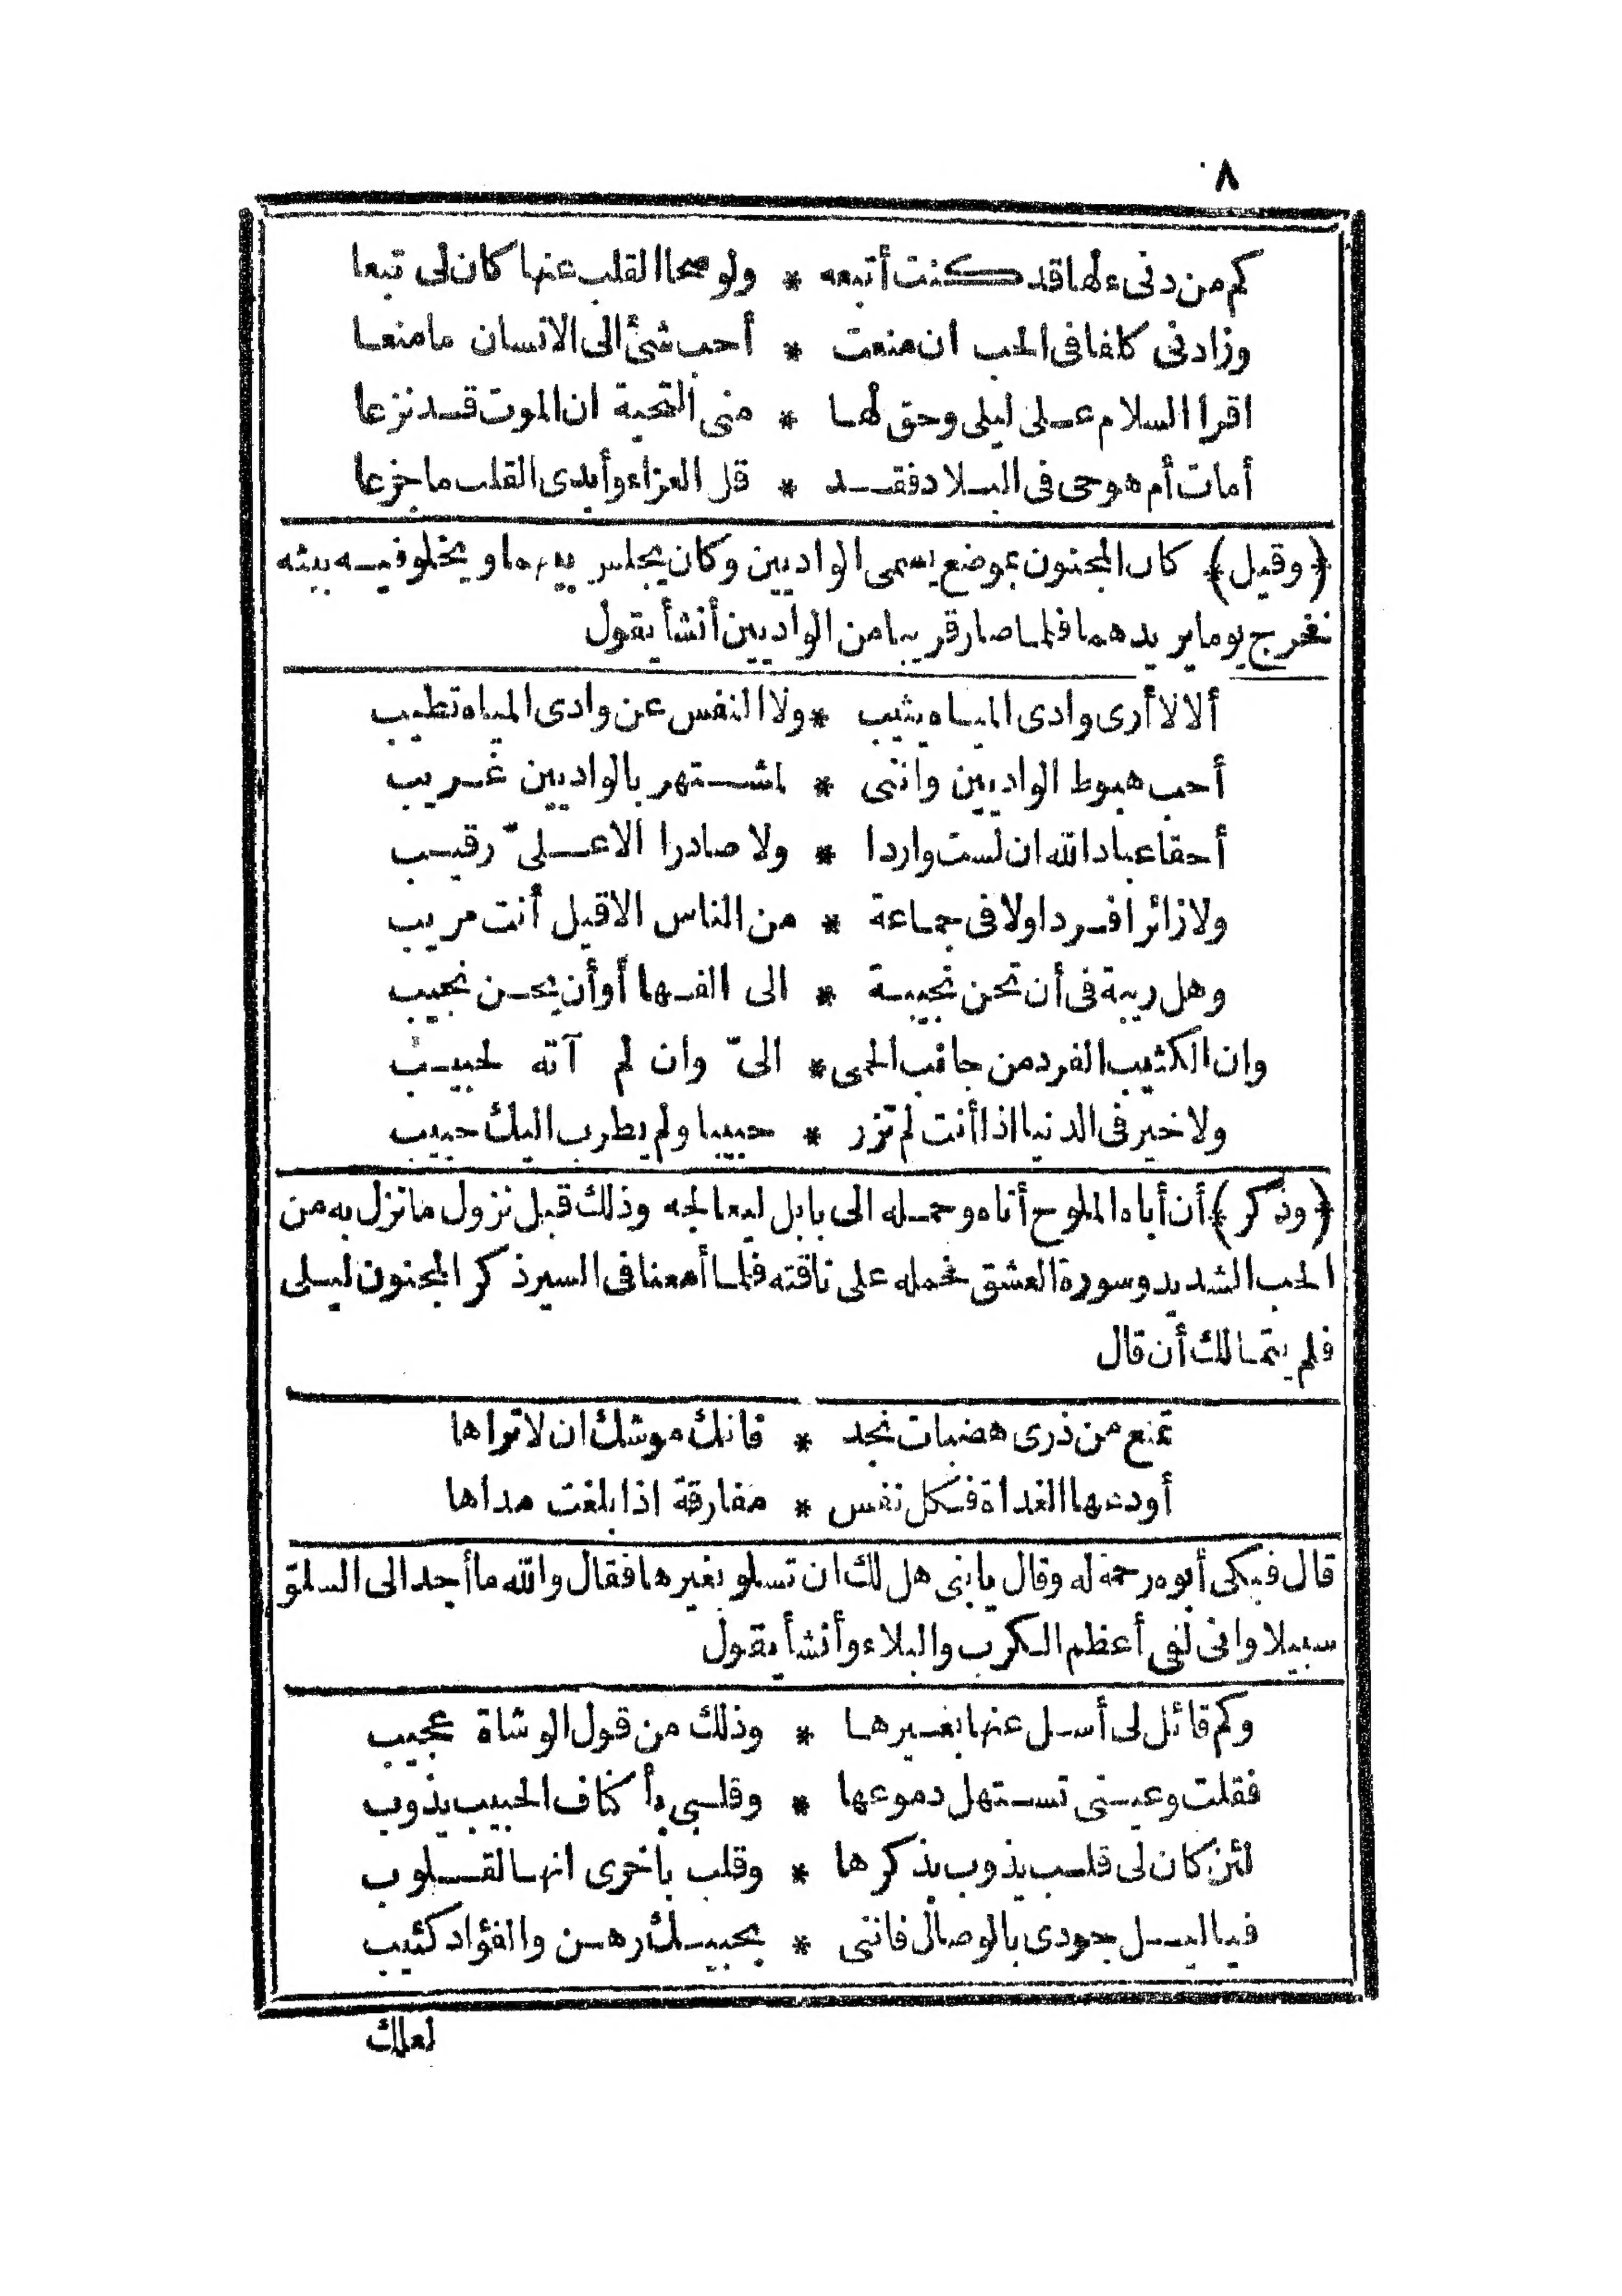 ٨
كم من دنىء لها قد كنت أتبعه * ولو صحا القلب عنها كان لى تبعا
وزادنى كلفا فى الحب ان منعت * أحب شئ الى الانسان ما منعا
اقرأ السلام على ليلى وحق لها * منى التحية ان الموت قد نزعا
أمات أم هو حى فى البلاد فقد * قل العزاء وأبدى القلب ما جزعا
﴿وقيل﴾ كان المجنون بموضع يسمى الواديين وكان يجلس بينهما ويخلو فيه ببثه
نفرج يوما يريدهما فلما صار قريبا من الواديين أنشأ يقول
ألا لا أرى وادى المياه يثيب * ولا النفس عن وادى المياه تطيب
أحب هبوط الواديين واننى * لمشتهر بالواديين غريب
أحقا عباد الله ان لست واردا * ولا صادرا الا علىّ رقيب
ولا زائرا فردا ولا فى جماعة * من الناس الا قيل أنت مريب
وهل ريبة فى أن تحن نجيبة * الى الفها أو أن يحن نجيب
وان الكثيب الفرد من جانب الحمى * الىّ وان لم آته لحبيب
ولا خير فى الدنيا اذا أنت لم تزر * حبيبا ولم يطرب اليك حبيب
﴿وذكر﴾ أن أباه الملوح أتاه وحمله الى بابل ليعالجه وذلك قبل نزول ما نزل به من
الحب الشديد وسورة العشق فحمله على ناقته فلما أمعنا فى السير ذكر المجنون ليلى
فلم يتمالك أن قال
تمنع من ذرى هضبات نجد * فانك موشك ان لا تراها
أودعها الغداة فكل نفس * مفارقة اذا بلغت مداها
قال فبكى أبوه رحمة له وقال يا بنى هل لك ان تسلو بغيرها فقال والله ما أجد الى السلوّ
سبيلا وانى لفى أعظم الكرب والبلاء وأنشأ يقول
وكم قائل لى أسل عنها بغيرها * وذلك من قول الوشاة عجيب
فقلت وعينى تستهل دموعها * وقلبى بأكناف الحبيب يذوب
لئن كان لى قلب يذوب بذكرها * وقلب بأخرى انها لقلوب
فيا ليل جودى بالوصال فاننى * بحبيك رهن والفؤاد كئيب
لعلك